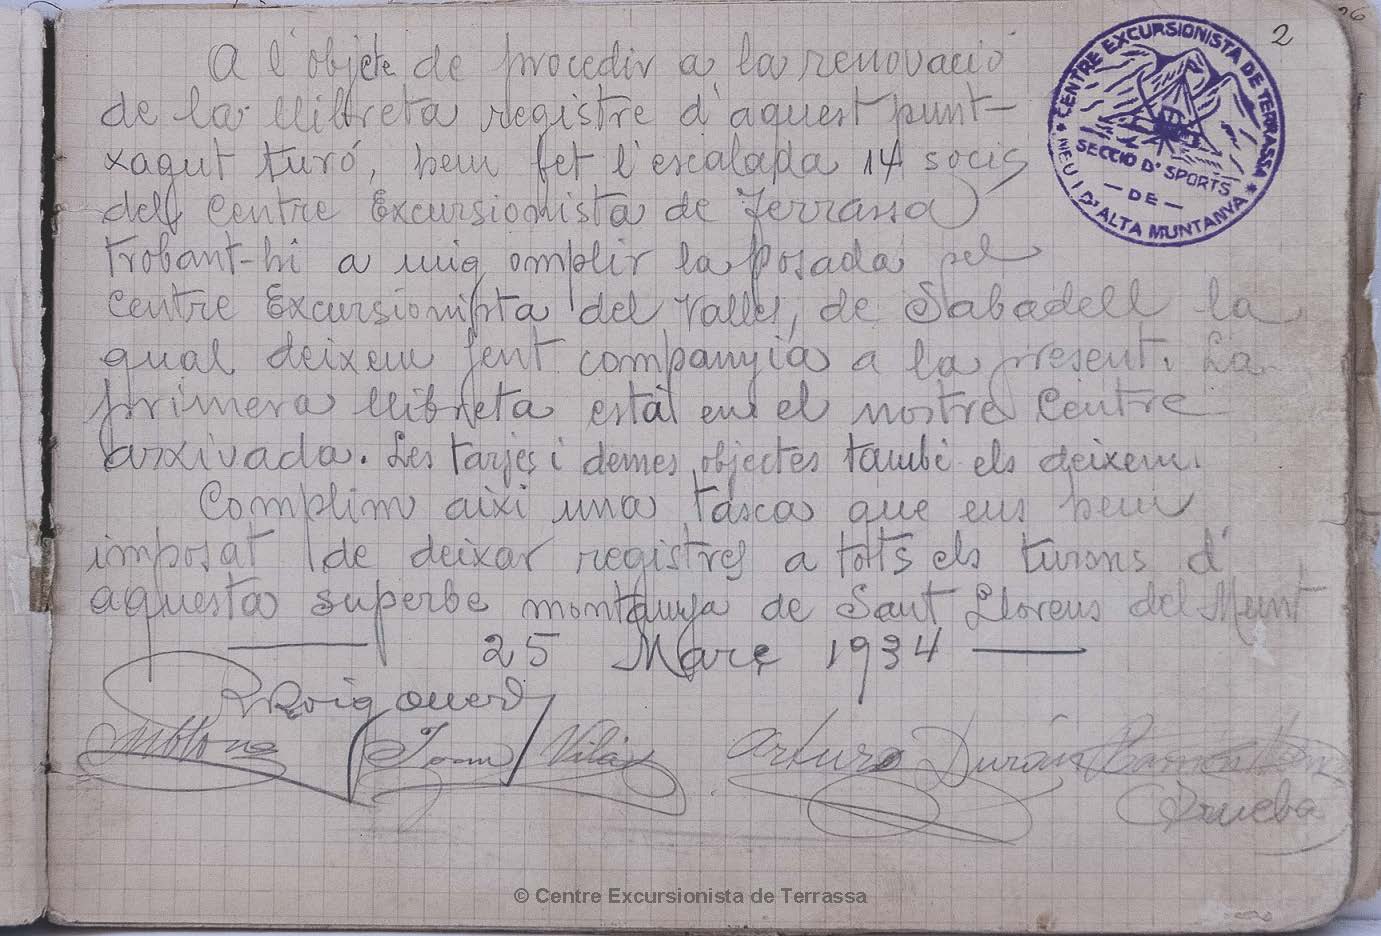 2
A l'objecte de procedir a la renovació
de la llibreta registre d'aquest punt-
xagut turó, hem fet l'escalada 14 socis
del Centre Excursionista de Terrassa
trobant-hi a mig omplir la posada pel
Centre Excursionista del Vallés, de Sabadell la
qual deixem fent companyia a la present. La
primera llibreta està en el nostre Centre
arxivada. Les tarjes i demes objectes també els deixem.
Complim aixi una tasca que ens hem
imposat de deixar registres a tots els turons d'
aquesta superbe montanya de Sant Llorens del Munt
25 Març 1934
Roig
Joan Vilà
Arturo Durán
CENTRE EXCURSIONISTA DE TERRASSA
SECCIO D'SPORTS
— DE —
NEU I D'ALTA MUNTANYA
© Centre Excursionista de Terrassa